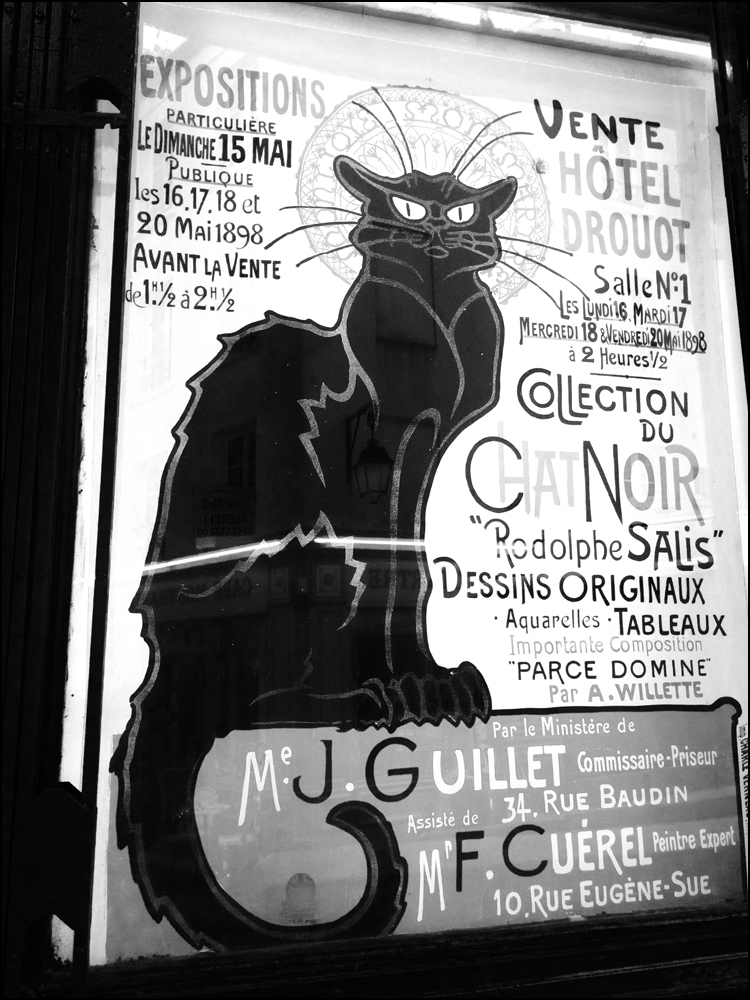 EXPOSITIONS
PARTICULIÈRE
LE DIMANCHE 15 MAI
PUBLIQUE
les 16, 17, 18 et
20 Mai 1898
AVANT LA VENTE
de 1.H.1/2 à 2.H.1/2
VENTE
HÔTEL
DROUOT
Salle No:1
LES LUNDI 16, MARDI 17
MERCREDI 18 & VENDREDI 20 MAI 1898
à 2 HEURES 1/2
COLLECTION
DU
CHAT NOIR
"Rodolphe SALIS"
DESSINS ORIGINAUX
· Aquarelles · TABLEAUX
Importante Composition
"PARCE DOMINE"
Par A. WILLETTE
Par le Ministère de
Me. J. GUILLET Commissaire-Priseur
34, RUE BAUDIN
Assisté de
Mr F. CUÉREL Peintre Expert
10, RUE EUGÈNE-SUE